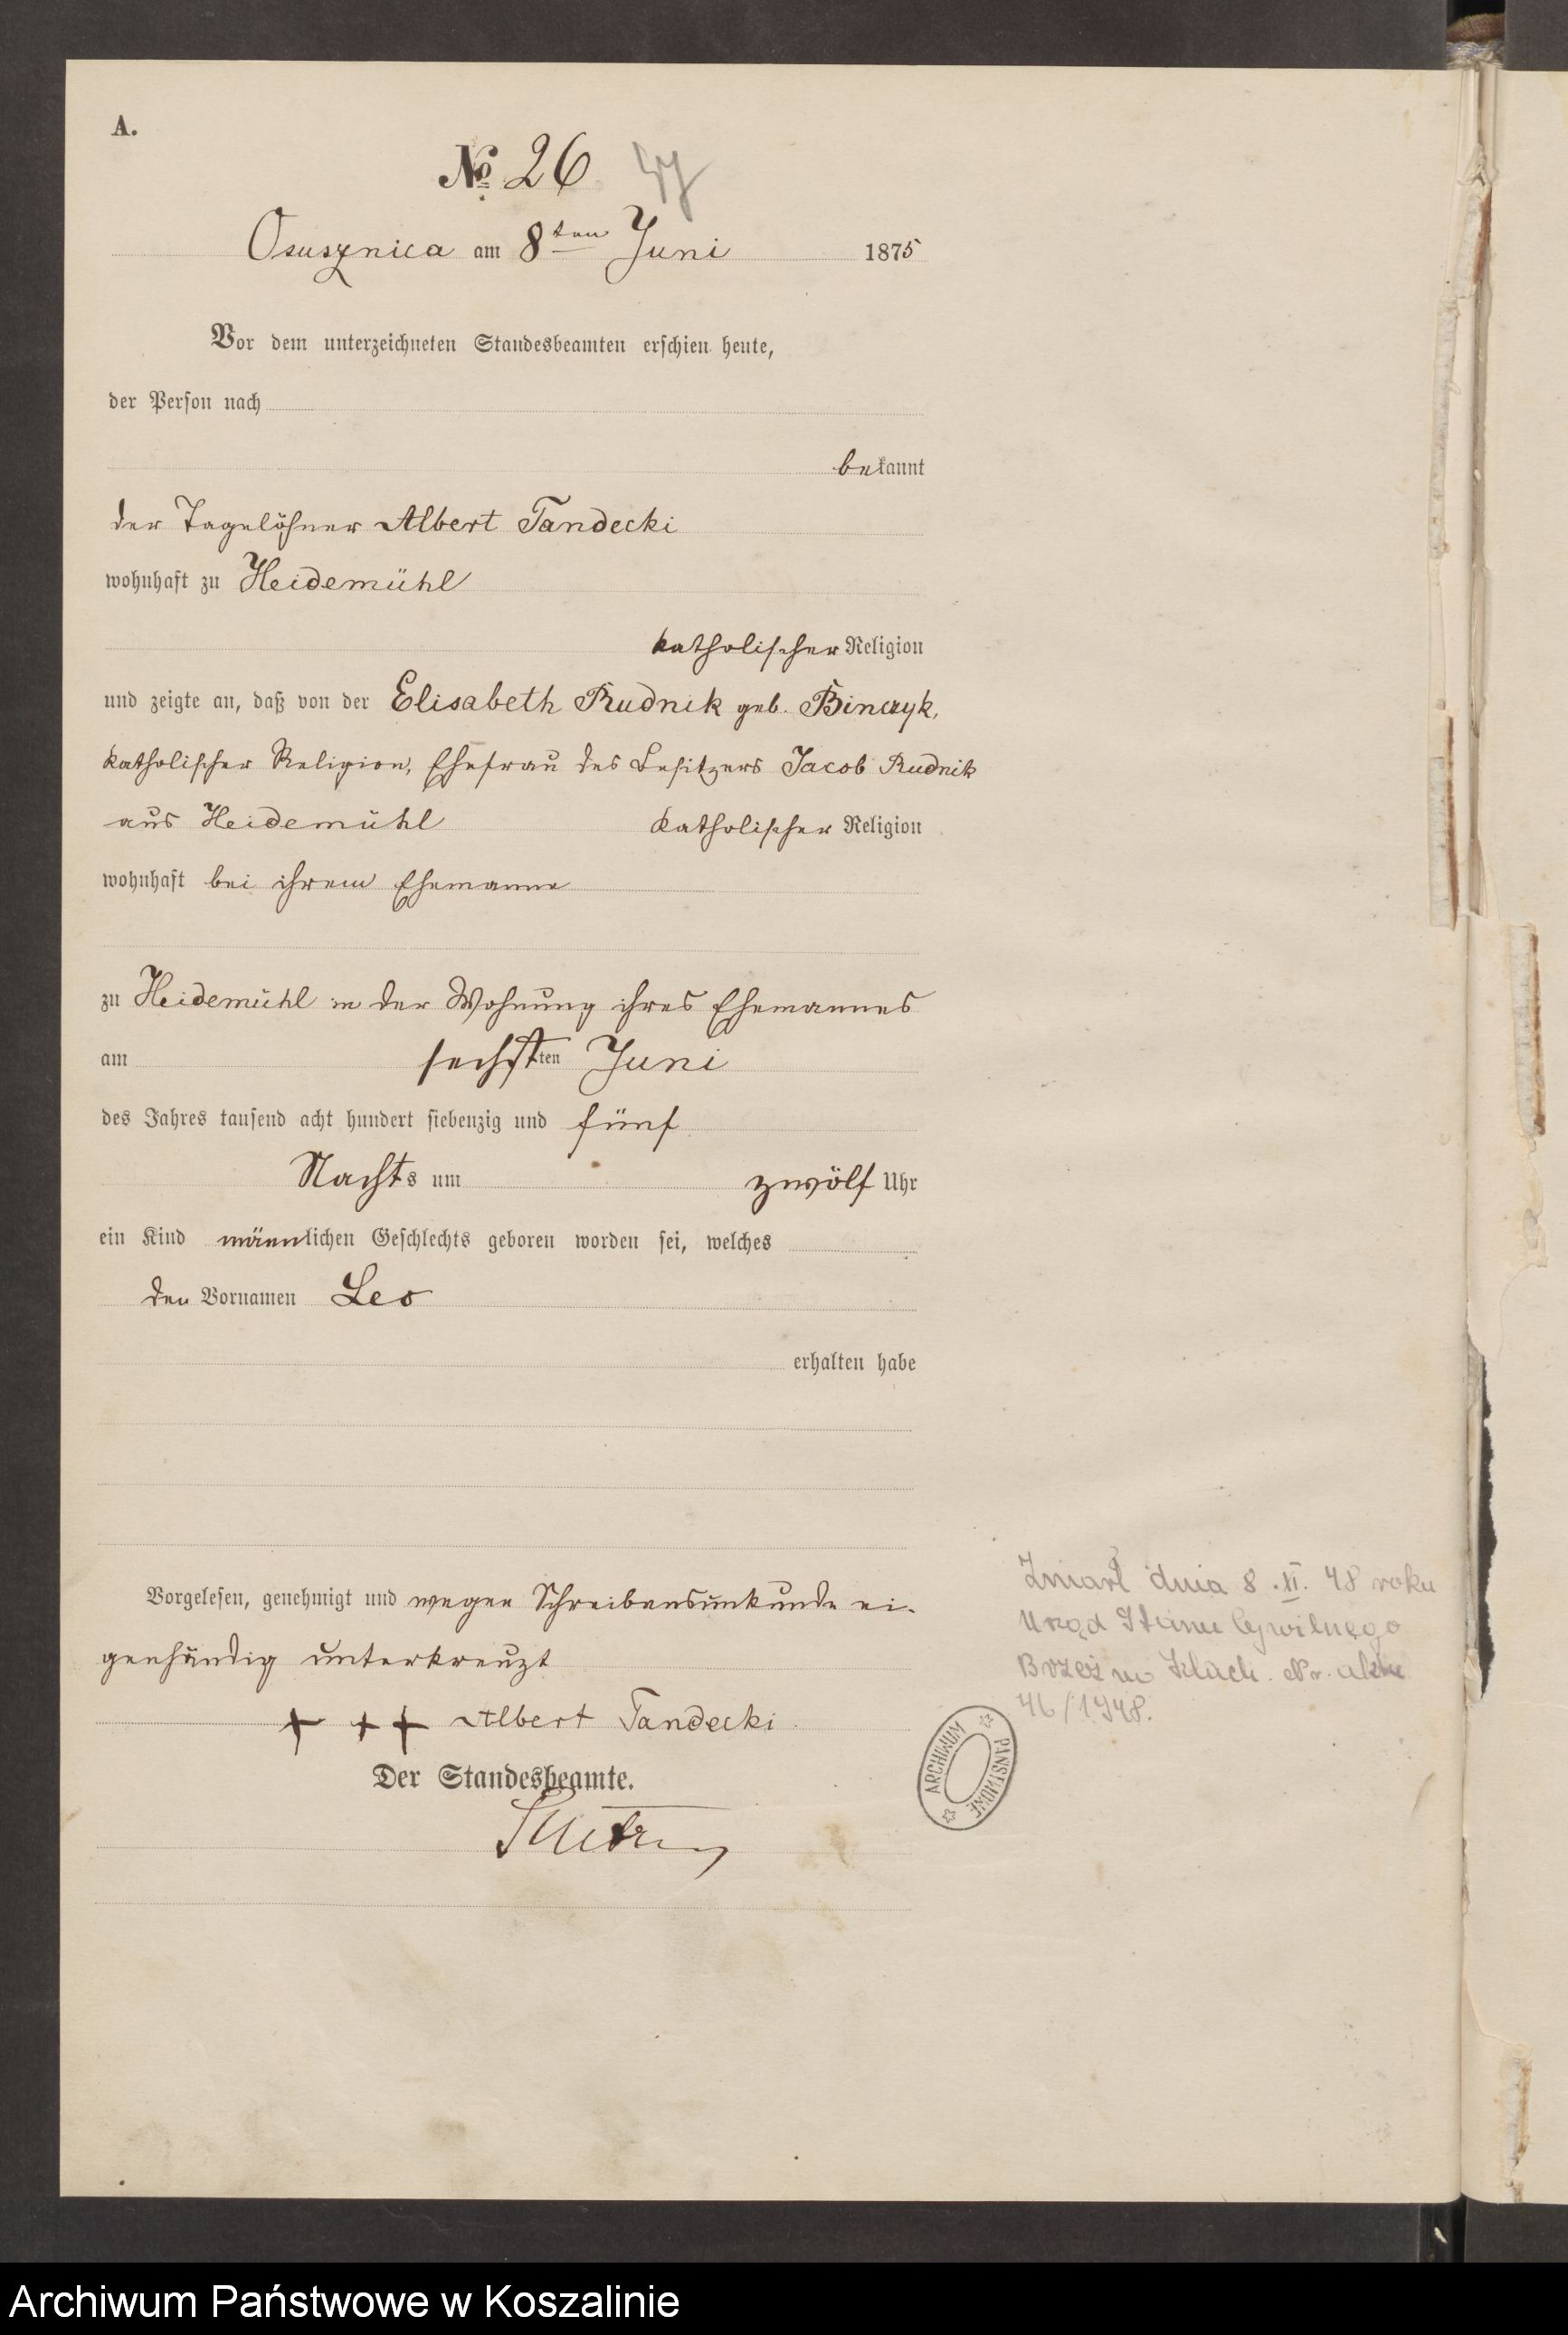 A.
№ 26
Osusznica am 8ten Juni 1875
Vor dem unterzeichneten Standesbeamten erschien heute,
der Person nach
bekannt
der Tagelöhner Albert Tandecki
wohnhaft zu Heidemühl
katholischer Religion
und zeigte an, daß von der Elisabeth Rudnik geb. Binczyk,
katholischer Religion, Ehefrau des Besitzers Jacob Rudnik
aus Heidemühl katholischer Religion
wohnhaft bei ihrem Ehemanne
zu Heidemühl in der Wohnung ihres Ehemannes
am sechsten Juni
des Jahres tausend acht hundert siebenzig und fünf
Nachts um zwölf Uhr
ein Kind männlichen Geschlechts geboren worden sei, welches
den Vornamen Leo
erhalten habe
Vorgelesen, genehmigt und wegen Schreibensunkunde ei-
genhändig unterkreuzt
+ + + Albert Tandecki
Der Standesbeamte.
Zmarł dnia 8.XI.48 roku
Urząd Stanu Cywilnego
Brzeźno Szlach. Nr. aktu
46/1948.
ARCHIWUM PAŃSTWOWE
Archiwum Państwowe w Koszalinie